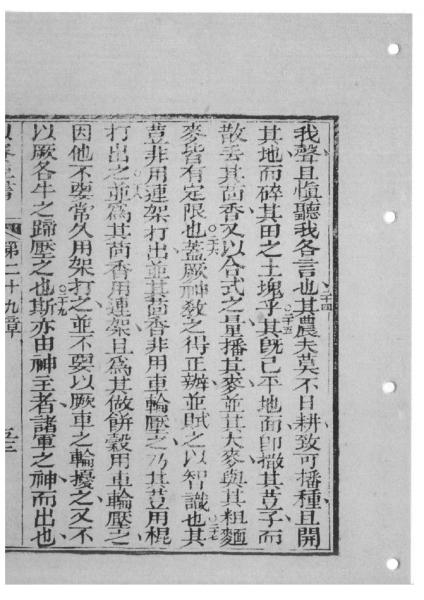 我聲且愼聽我各言也○二十四其農夫莫不日耕致可播種且開
其地而碎其田之土塊乎○二十五其旣已平地面卽撒其荳子而
散丟其茴香又以合式之量播其麥並其大麥與其粗麵
麥皆有定限也○二十六蓋厥神敎之得正辦並賦之以智識也○二十七其
荳非用連架打出並其茴香非用車輪壓之乃其荳用棍
打出之並爲其茴香用連架且爲其做餅穀用車輪壓之
因他不要常久用架打之並不要以厥車之輪擾之又不
以厥各牛之蹄壓之也○二十九斯亦由神主者諸軍之神而出也
第二十九章